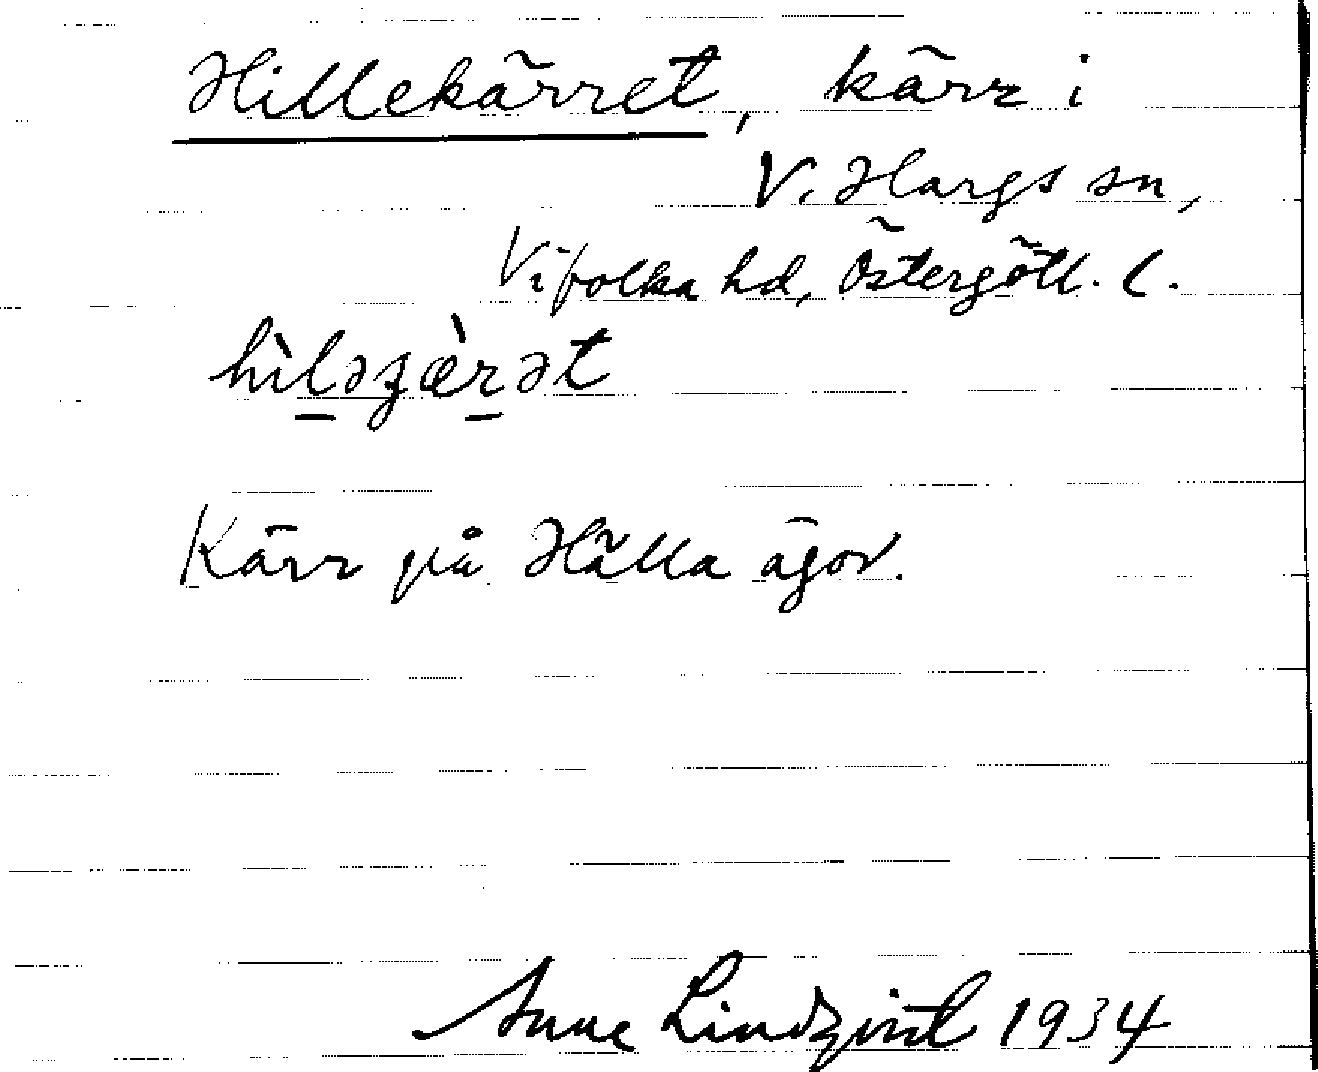 Hillekärret, kärr i
V. Hargs sn,
Vifolka hd, Östergötl. l.
hìləʒæ̀rət
Kärr på Hälla ägor.
Sune Lindqvist 1934